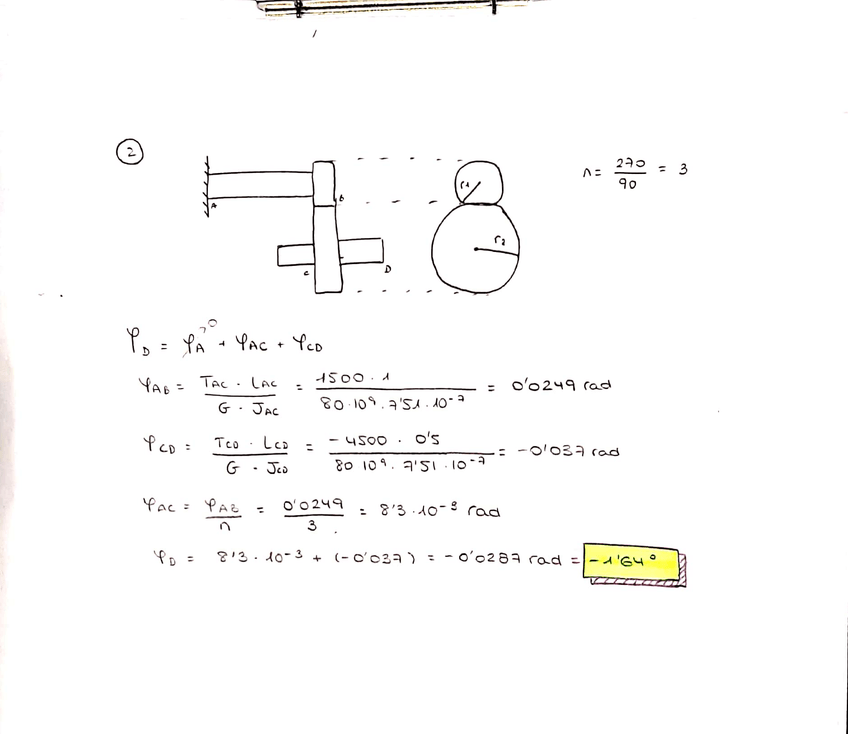 2
n = 270/90 = 3
r1
A
B
r2
C
D
φD = φA→0 + φAC + φCD
φAB = TAC · LAC / G · JAC = 1500 · 1 / 80·10⁹ · 7'51 · 10⁻⁷ = 0'0249 rad
φCD = TCD · LCD / G · JCD = -4500 · 0'5 / 80 10⁹ · 7'51 · 10⁻⁷ = -0'037 rad
φAC = φAB / n = 0'0249 / 3 = 8'3 · 10⁻³ rad
φD = 8'3 · 10⁻³ + (-0'037) = -0'0287 rad = -1'64°